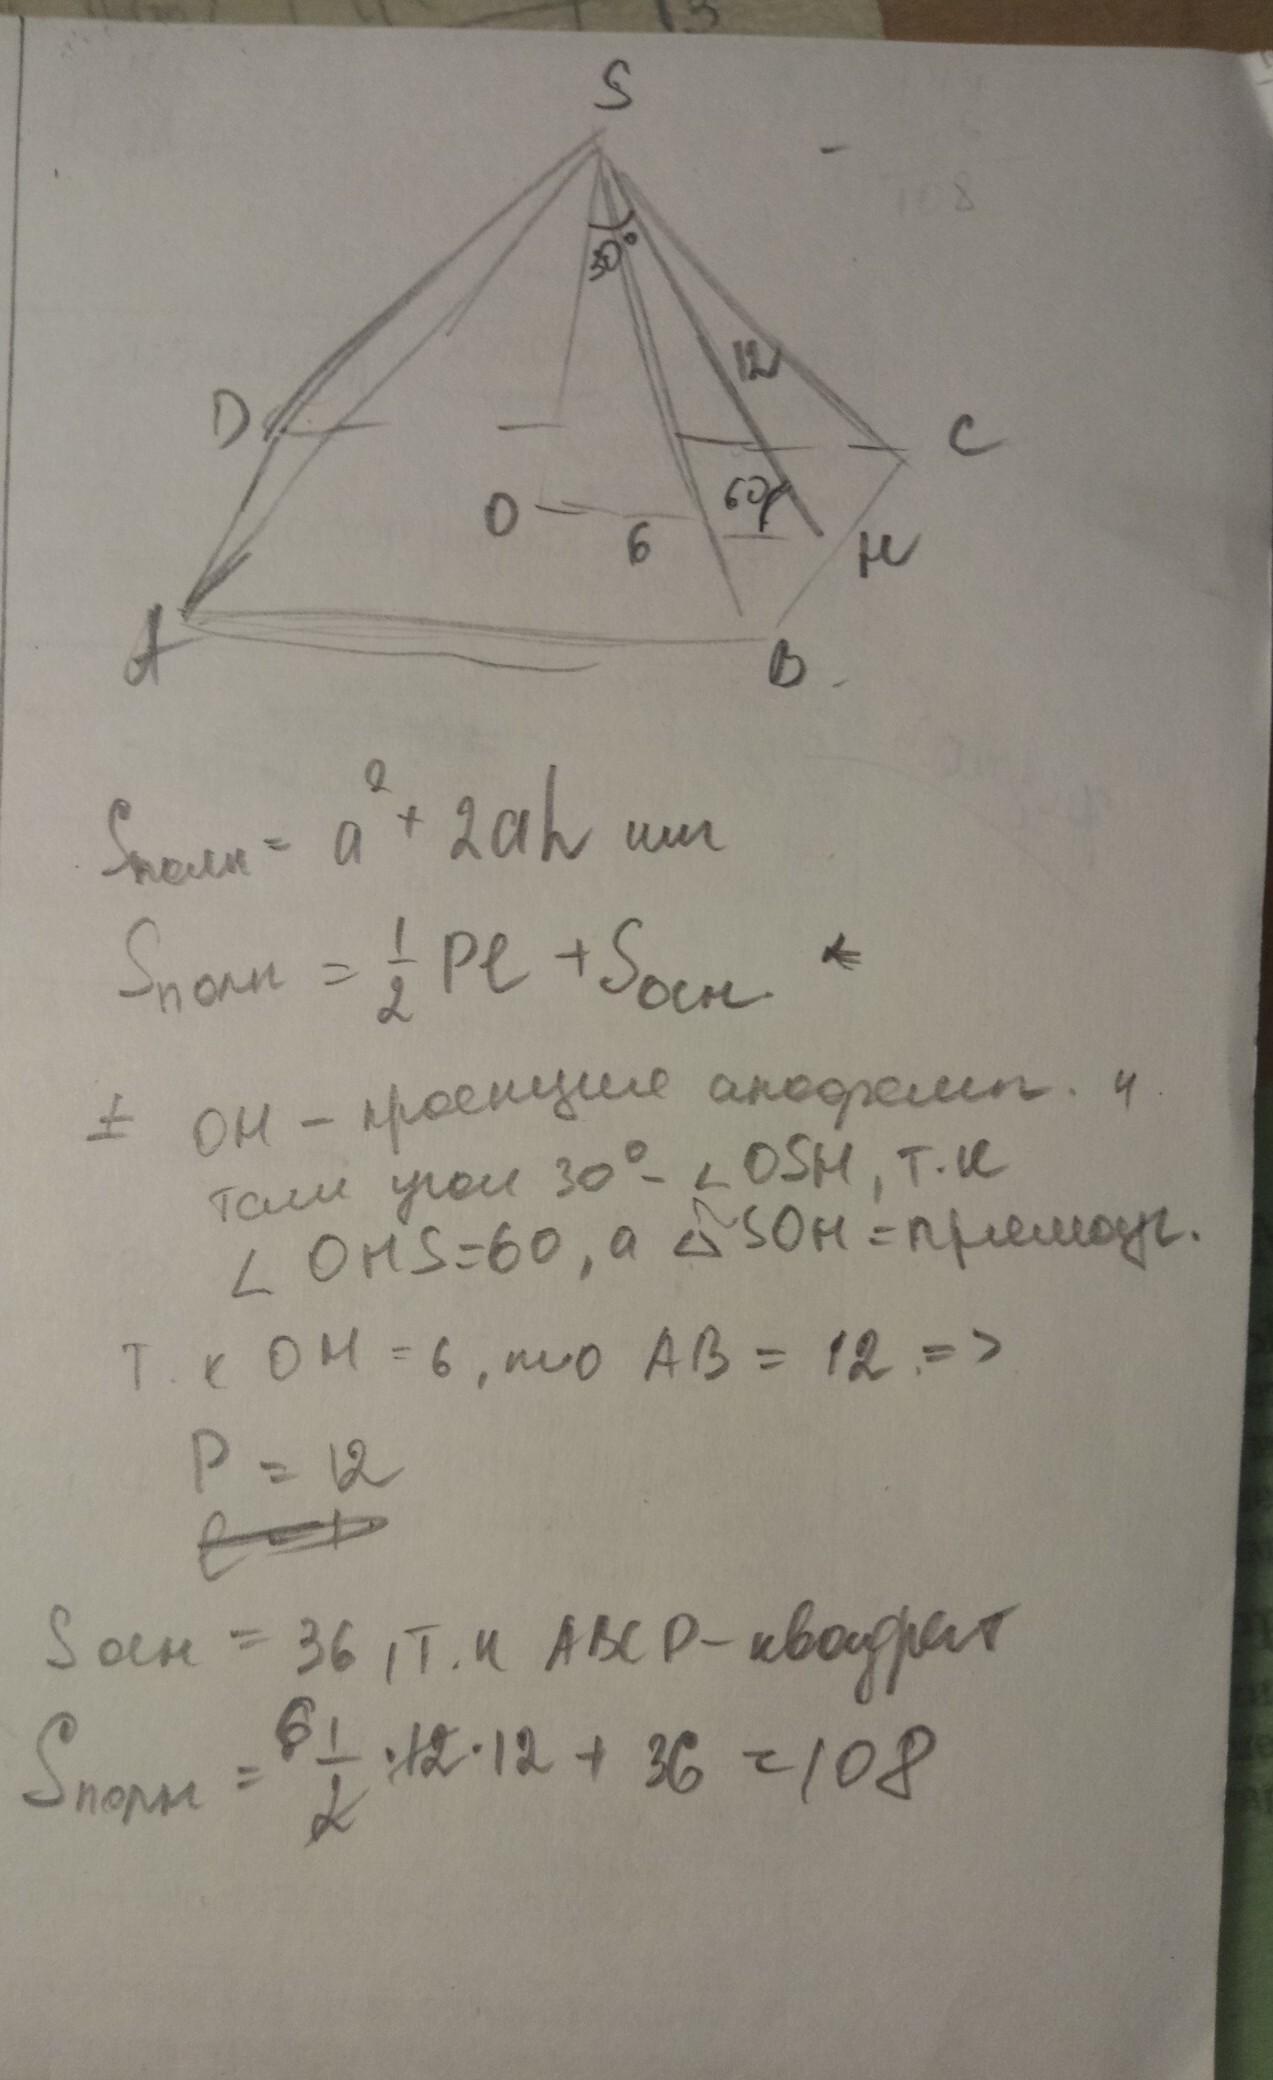 13
S
30°
12
D
C
O
6
60
H
A
B
Sполн = a² + 2ah или
Sполн = 1/2 Pl + Sосн.
± OH - проекция апофемы. и
тали угол 30° - ∠OSH, т.к
∠ OHS=60, а △SOH = прямоуг.
т. к OH = 6, то AB = 12 =>
P = 12
Sосн = 36, т.к ABCD - квадрат
Sполн = 6 1/2 · 12 · 12 + 36 = 108